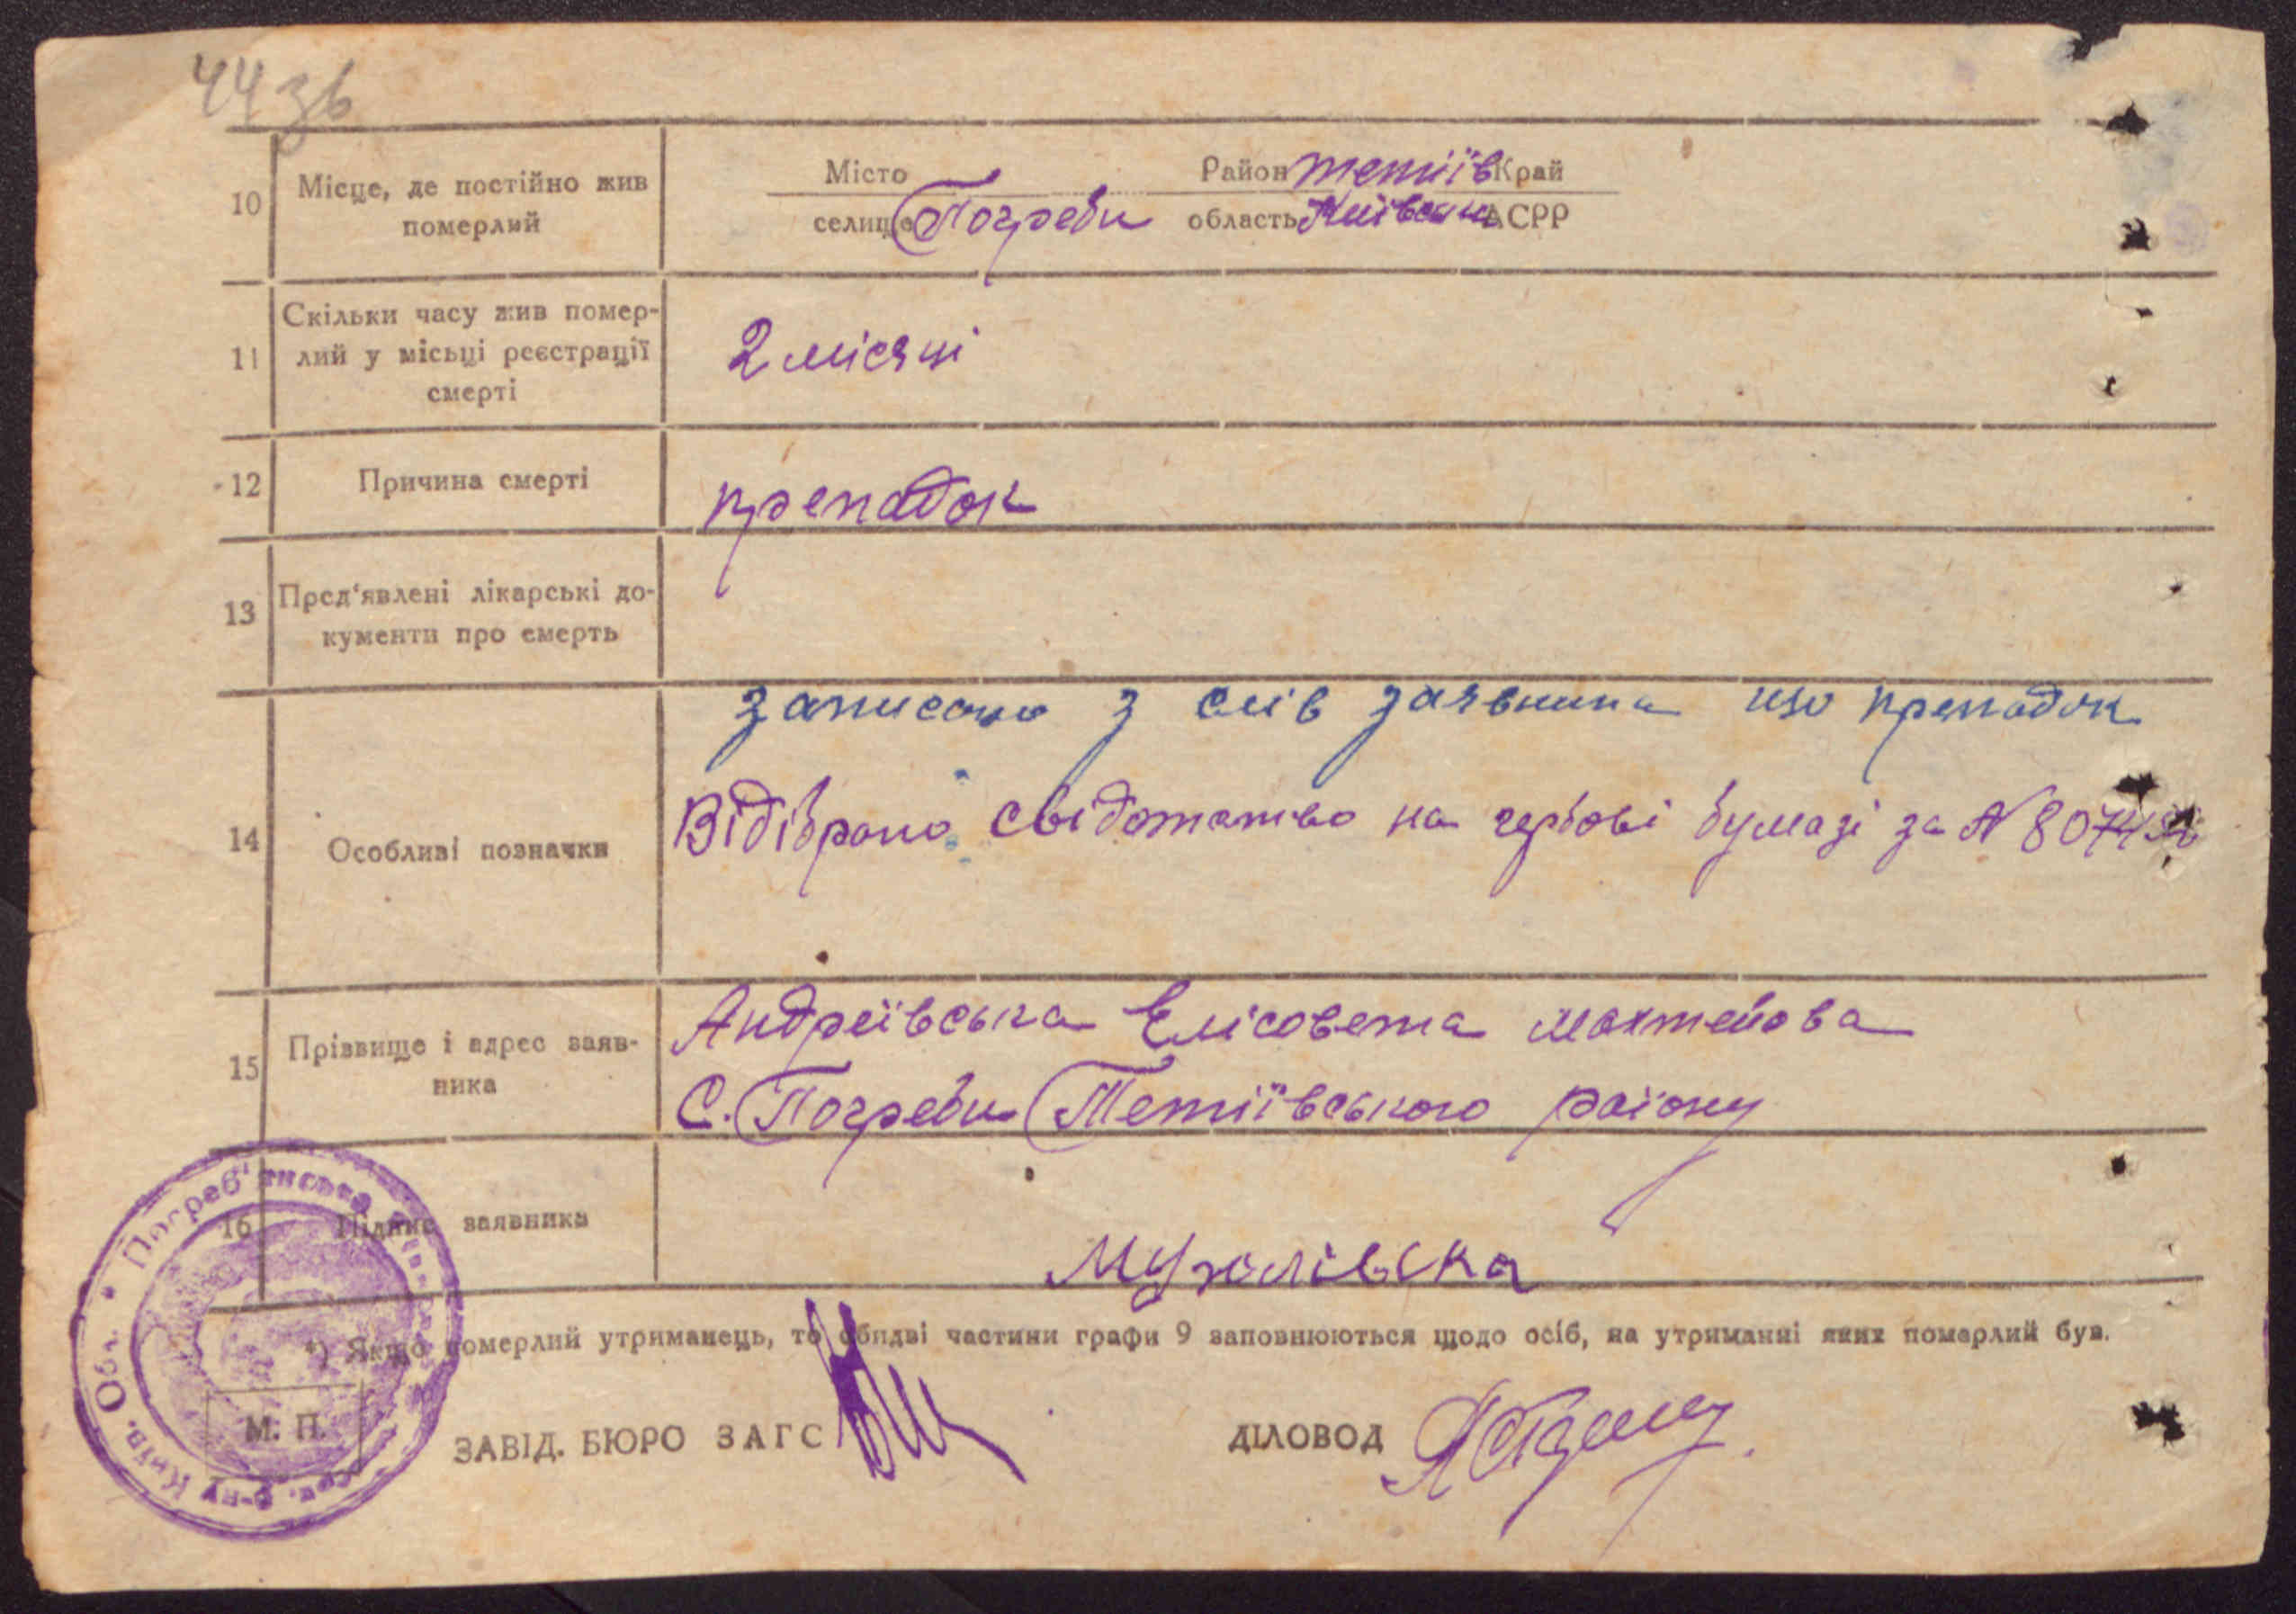 44зв
10 Місце, де постійно жив померлий
Місто Район Тетіїв Край
селище Погреби область Київська АСРР
11 Скільки часу жив помер-
лий у місьці реєстрації
смерті
2 місяці
12 Причина смерті
препадок
13 Пред'явлені лікарські до-
кументи про смерть
записано з слів заявника що препадок
14 Особливі позначки
Відібрано свідотатво на гербові бумазі за №
15 Прізвище і адрес заяв-
ника
Андреївська Елісовета Махтейова
С. Погреби Тетіївського раіону
16 Підпис заявника
*) Якщо померлий утриманець, то обидві частини графи 9 заповнюються щодо осіб, на утриманні яких померлий був.
М. П.
ЗАВІД. БЮРО ЗАГС
ДІЛОВОД
Погреб'янська
р-ну Київ. Обл.